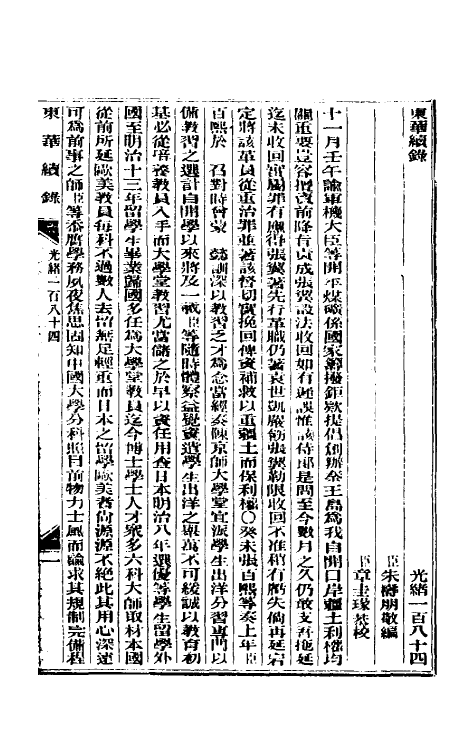 東華續錄
光緒一百八十四
臣朱壽朋敬編
臣章圭瑑恭校
十一月壬午諭軍機大臣等開平煤礦係國家籌撥鉅款提倡創辦秦王島爲我自開口岸疆土利權均
關重要豈容擅賣前降旨責成張翼設法收回如有遲誤惟該侍郎是問至今數月之久仍敢支吾拖延
迄未收回實屬罪有應得張翼著先行革職仍著袁世凱嚴飭張翼勒限收回不准稍有虧失倘再延宕
定將該革員從重治罪並著該督切實挽回俾資補救以重疆土而保利權〇癸未張百熙等奏上年臣
百熙於 召對時曾蒙 懿訓深以教習乏才爲念當經奏陳京師大學堂宜派學生出洋分習專門以
備教習之選計自開學以來將及一載臣等隨時體察益覺資遣學生出洋之舉萬不可緩誠以教育初
基必從培養教員入手而大學堂教習尤當儲之於早以資任用查日本明治八年選優等學生留學外
國至明治十三年留學生畢業歸國多任爲大學堂教員迄今博士學士人才衆多六科大師取材本國
從前所延歐美教員每科不過數人去留無足輕重而日本之留學歐美者尚源源不絕此其用心深遠
可爲前事之師臣等忝膺學務夙夜焦思固知中國大學分科照目前物力士風而論求其規制完備程
東華續錄
光緒一百八十四
一